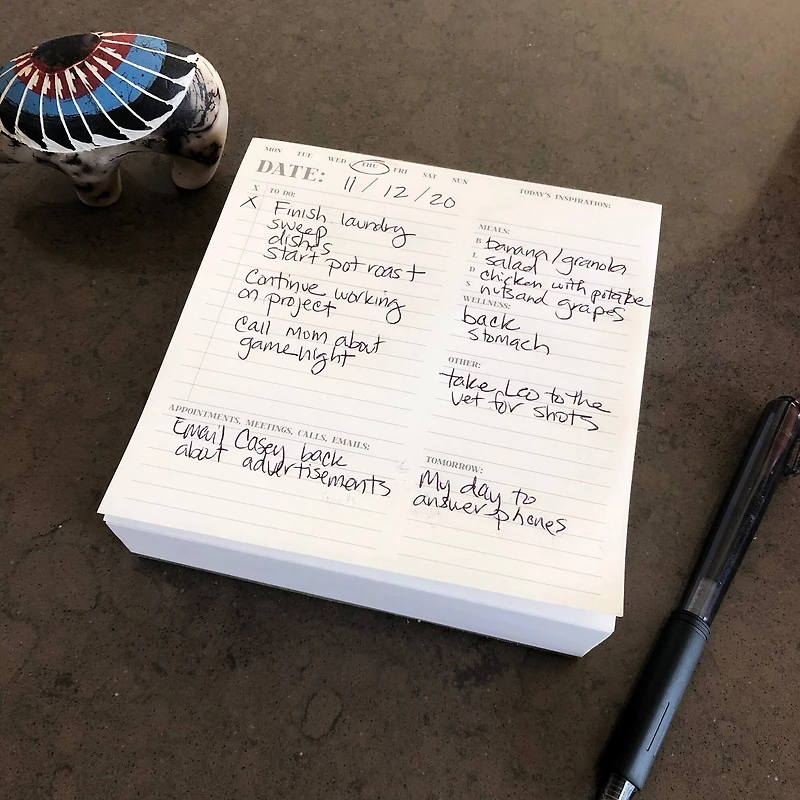 MON TUE WED THU FRI SAT SUN
DATE: 11/12/20
X TO DO:
X Finish laundry
sweep
dishes
start pot roast
Continue working
on project
Call Mom about
game night
APPOINTMENTS, MEETINGS, CALLS, EMAILS:
Email Casey back
about advertisements
TODAY'S INSPIRATION:
MEALS:
B banana/granola
L salad
D chicken with potatoe
S nuts and grapes
WELLNESS:
back
stomach
OTHER:
take Leo to the
vet for shots
TOMORROW:
My day to
answer phones